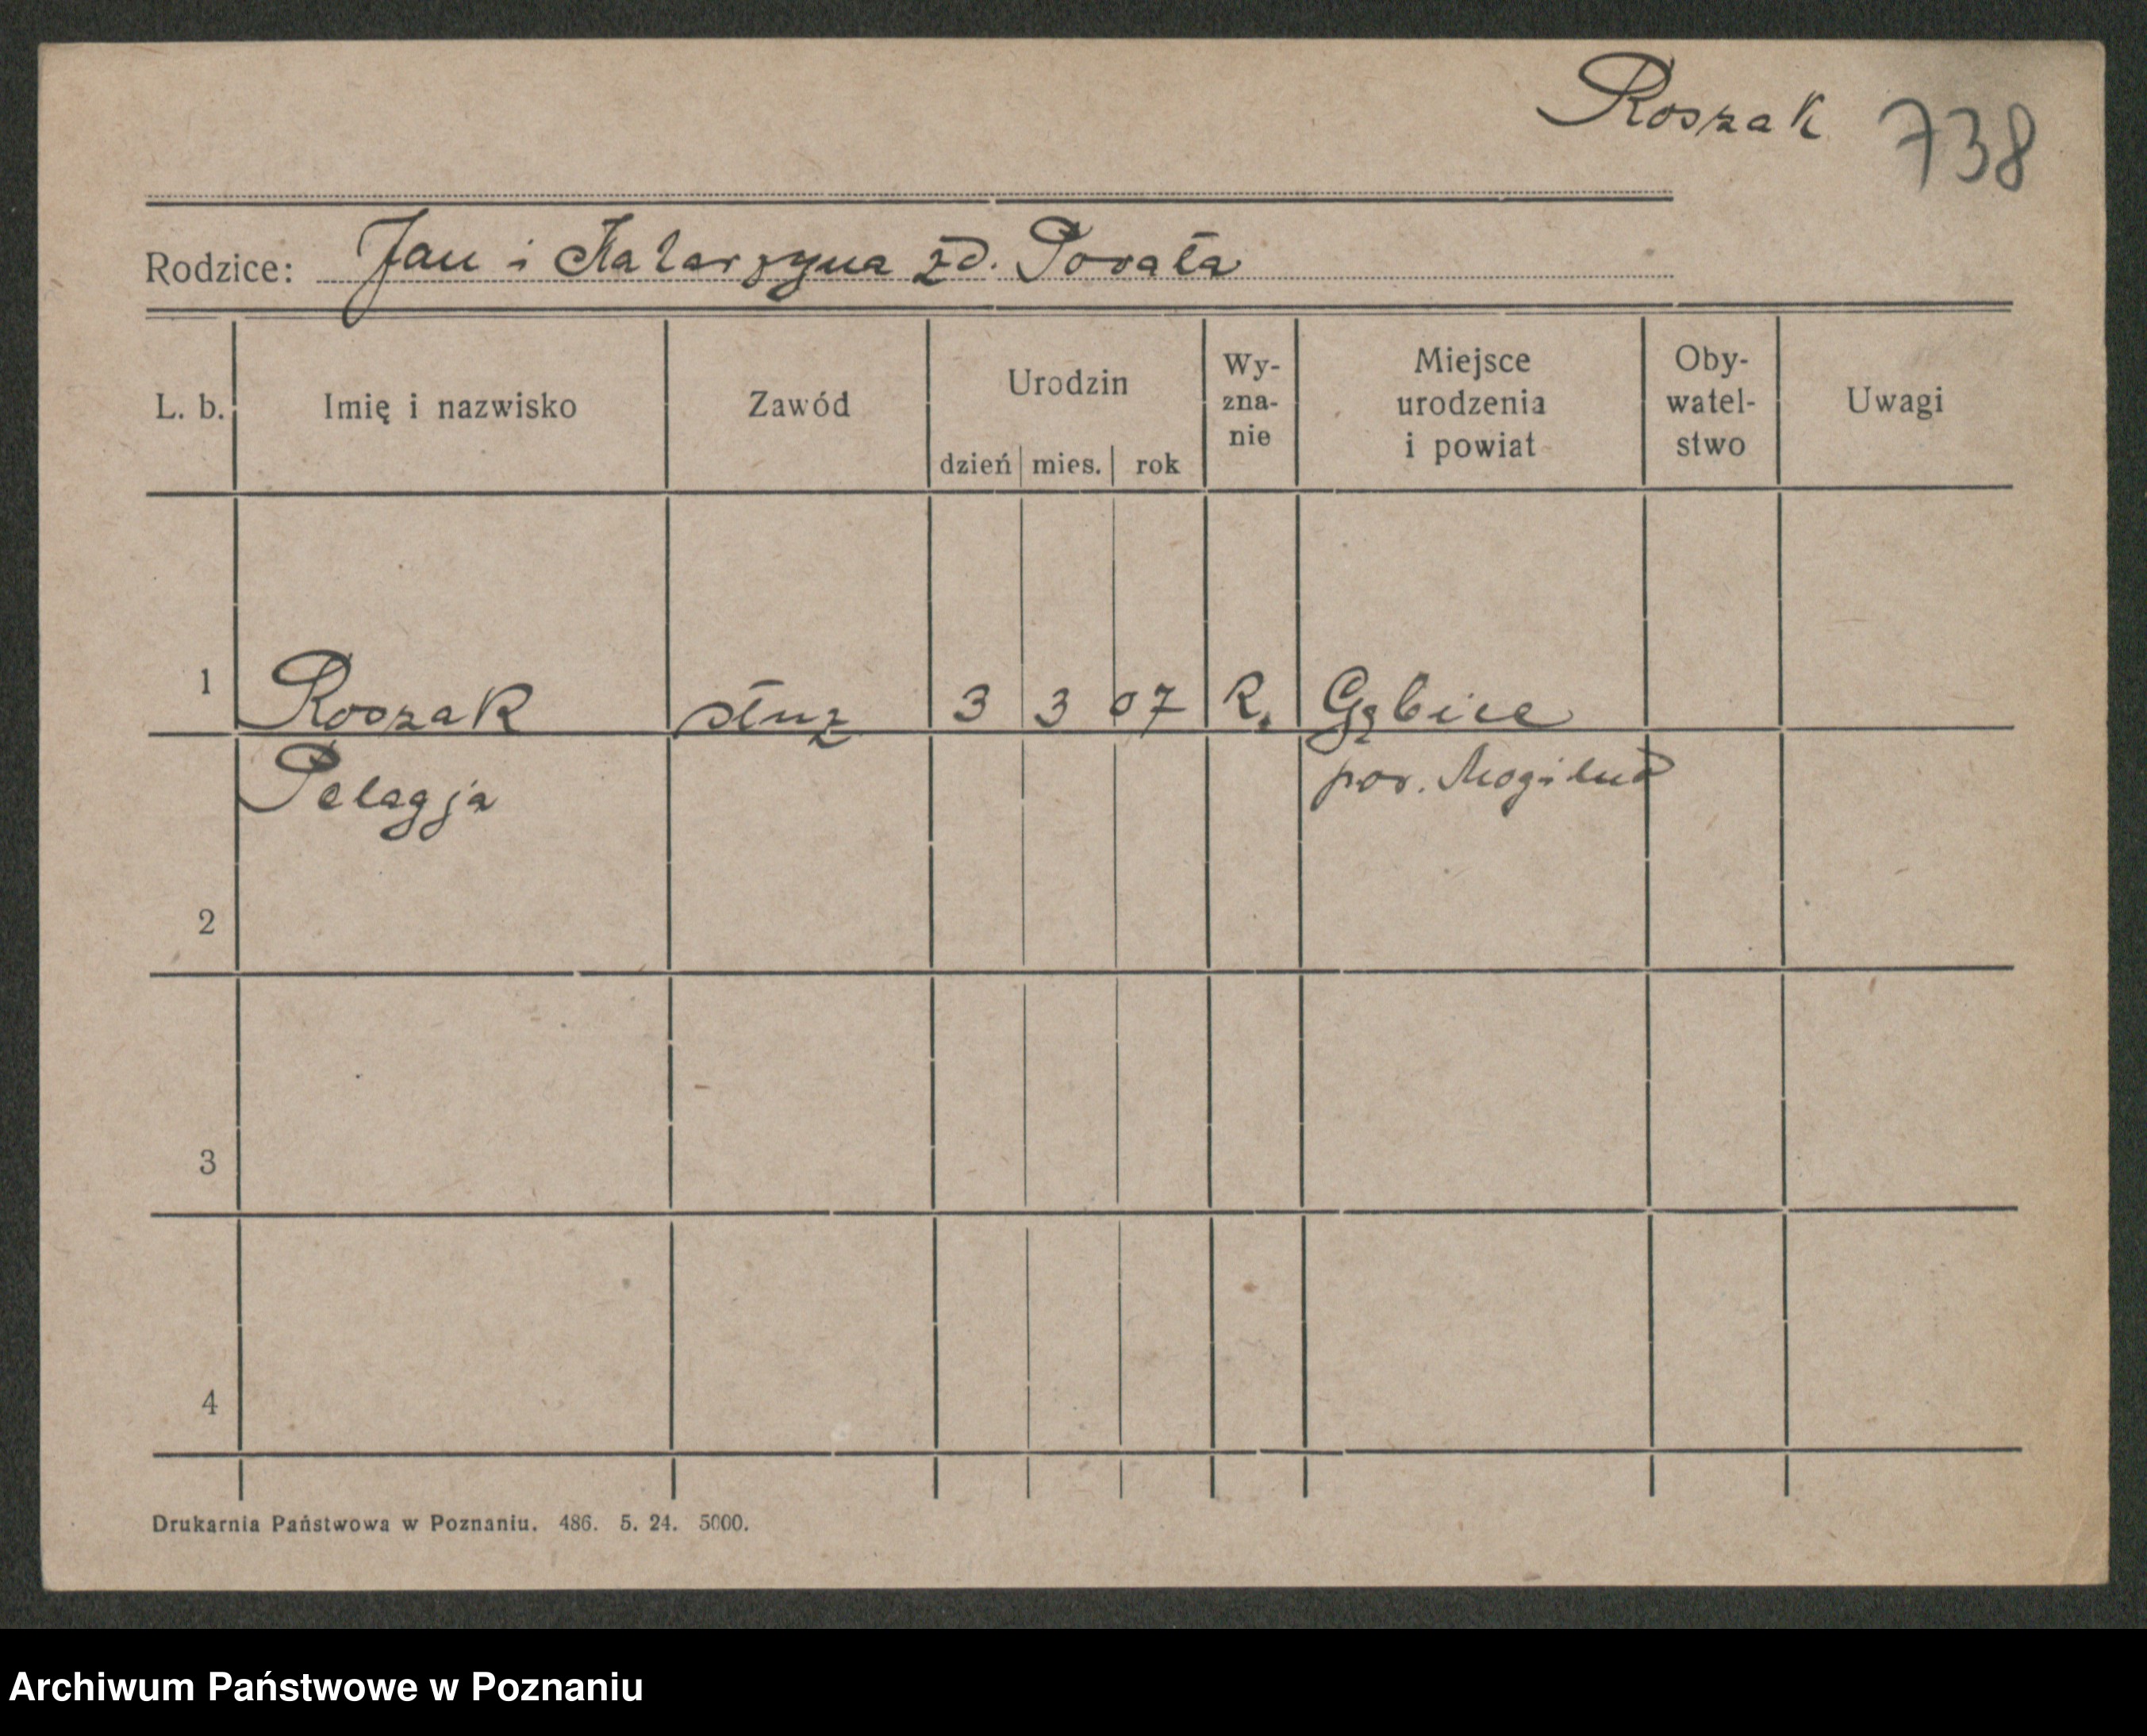 Roszak 738
Rodzice: Jan i Katarzyna zd. Powała
L. b. Imię i nazwisko Zawód Urodzin Wy- Miejsce Oby- Uwagi
zna- urodzenia watel-
nie i powiat stwo
dzień mies. rok
1 Roszak służ 3 3 07 R. Gębice
Pelagja pow. Mogilno
2
3
4
Drukarnia Państwowa w Poznaniu. 486. 5. 24. 5000.
Archiwum Państwowe w Poznaniu